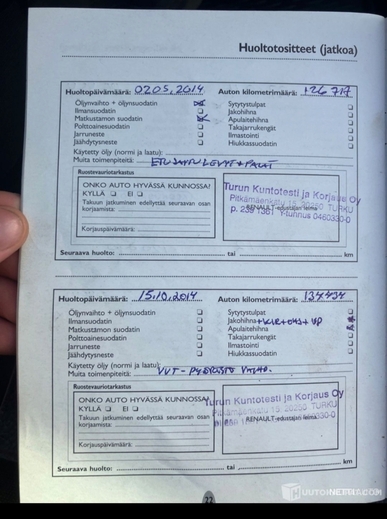 Huoltotositteet (jatkoa)
Huoltopäivämäärä: 02.05.2014 Auton kilometrimäärä: 126 717
Öljynvaihto + öljynsuodatin Sytytystulpat
Ilmansuodatin Jakohihna
Matkustamon suodatin Apulaitehihna
Polttoainesuodatin Takajarrukengät
Jarruneste Ilmastointi
Jäähdytysneste Hiukkassuodatin
Käytetty öljy (normi ja laatu):
Muita toimenpiteitä: ETUJARRULEVYT + PALAT
Ruostevauriotarkastus
ONKO AUTO HYVÄSSÄ KUNNOSSA?
KYLLÄ EI
Takuun jatkuminen edellyttää seuraavan osan
korjaamista:
Korjauspäivämäärä:
Turun Kuntotesti ja Korjaus Oy
Pitkämäenkatu 15, 20250 TURKU
RENAULT-edustajan leima
Y-tunnus 0460330-0
Seuraava huolto: tai km
Huoltopäivämäärä: 15.10.2014 Auton kilometrimäärä: 134434
Öljynvaihto + öljynsuodatin Sytytystulpat
Ilmansuodatin Jakohihna
Matkustamon suodatin Apulaitehihna
Polttoainesuodatin Takajarrukengät
Jarruneste Ilmastointi
Jäähdytysneste Hiukkassuodatin
Käytetty öljy (normi ja laatu):
Muita toimenpiteitä: VVT-PYÖRÄSTÖ
Ruostevauriotarkastus
ONKO AUTO HYVÄSSÄ KUNNOSSA?
KYLLÄ EI
Takuun jatkuminen edellyttää seuraavan osan
korjaamista:
Korjauspäivämäärä:
Turun Kuntotesti ja Korjaus Oy
20250 TURKU
RENAULT-edustajan leima
Seuraava huolto: tai km
22
HUUTOKAUPAT.COM